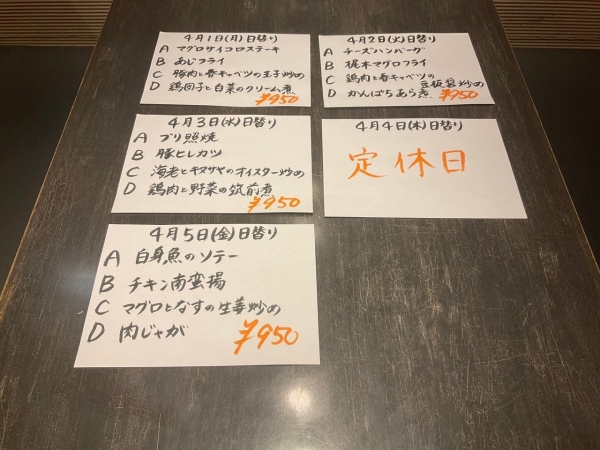 4月1日(月)日替り
A マグロサイコロステーキ
B あじフライ
C 豚肉と春キャベツの玉子炒め
D 鶏団子と白菜のクリーム煮
¥950
4月2日(火)日替り
A チーズハンバーグ
B 梶木マグロフライ
C 鶏肉と春キャベツの豆板醤炒め
D かんぱちあら煮
¥950
4月3日(水)日替り
A ブリ照焼
B 豚ヒレカツ
C 海老とキヌサヤのオイスター炒め
D 鶏肉と野菜の筑前煮
¥950
4月4日(木)日替り
定休日
4月5日(金)日替り
A 白身魚のソテー
B チキン南蛮揚
C マグロとなすの生姜炒め
D 肉じゃが
¥950